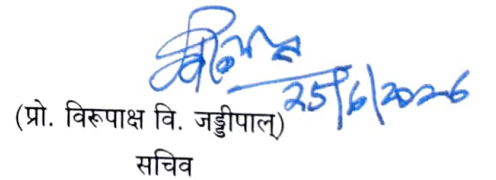 25/6/2026
(प्रो. विरूपाक्ष वि. जड्डीपाल्)
सचिव